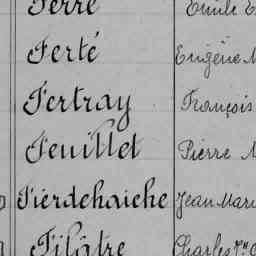 Ferré Emile
Ferté Eugène
Fertray François
Feuillet Pierre
Fierdehaiche Jean Mari
Filâtre Charles